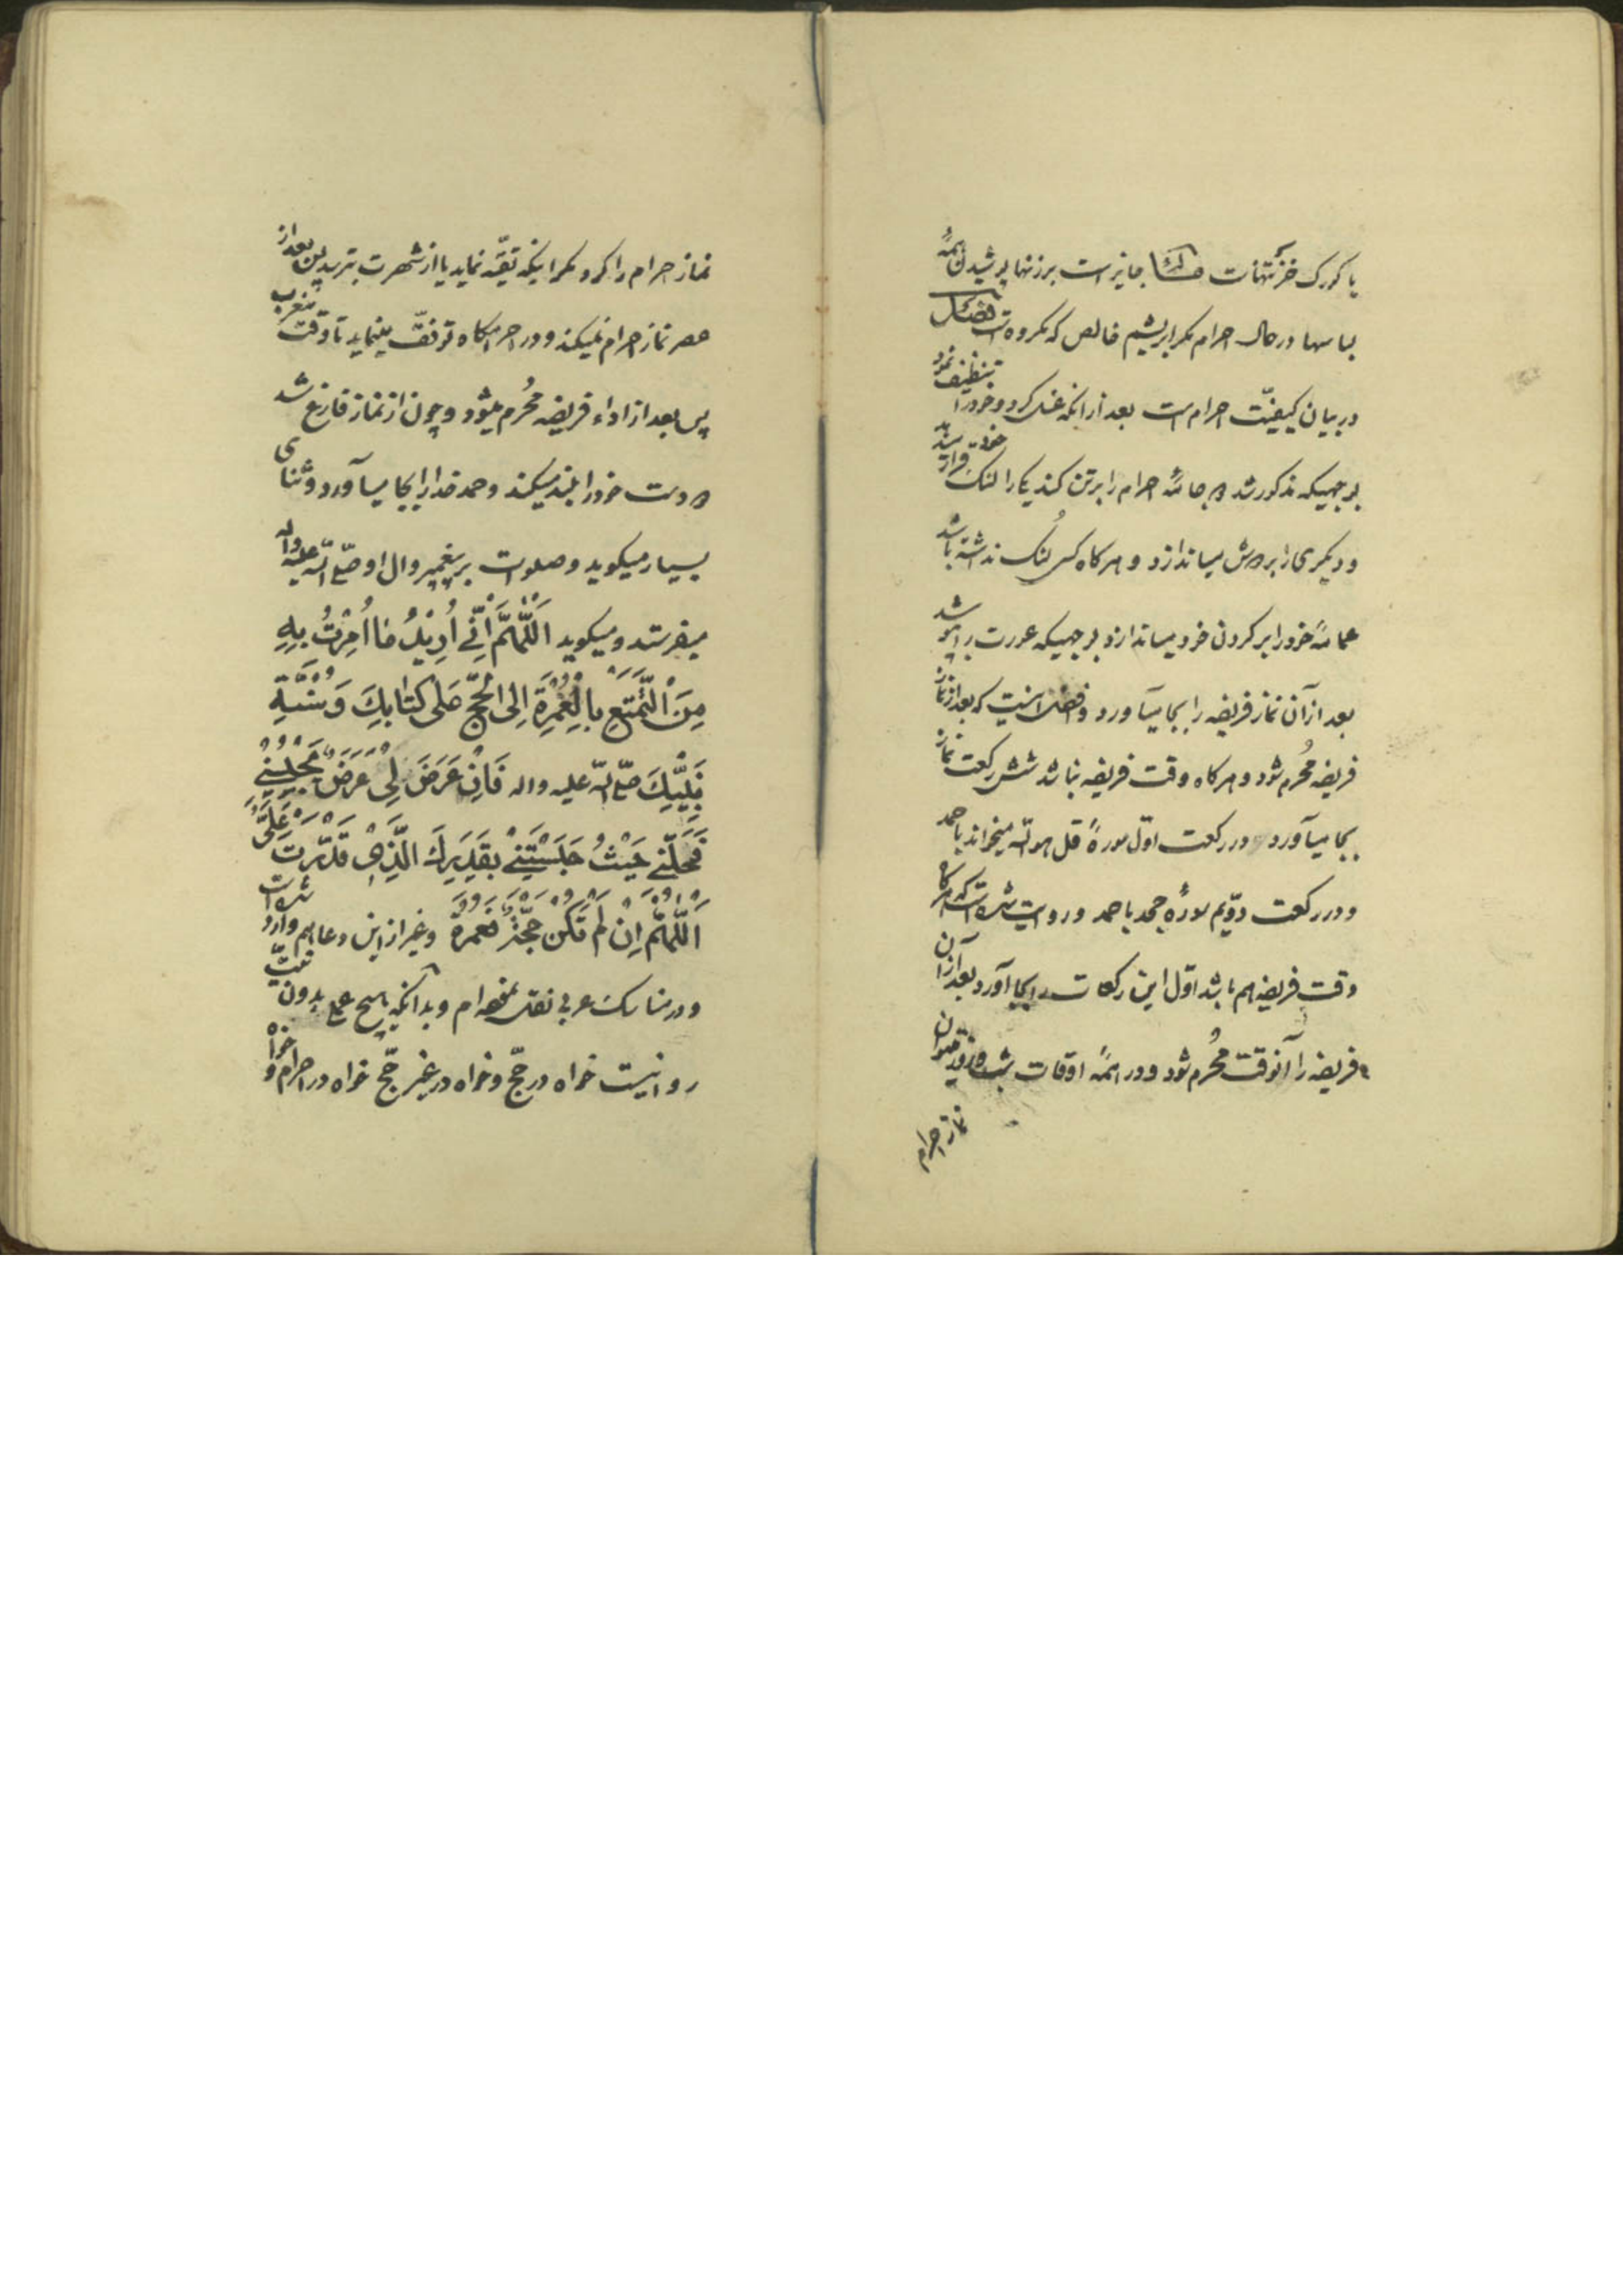 یا کورک خز کتهات مسئله جایز است بر زنها پوشیدن همهٔ
لباسها در حال احرام مکر ابریشم خالص که مکروه است فصل
در بیان کیفیّت احرام است بعد از انکه غسل کرد و خود را تنظیف نمود
بر جهیکه مذکور شد دو جامهٔ احرام را بر تن کند یکی را لنک خود قرار میدهد
و دیکری را بر دوش میاندازد و هر کاه کسی لنُک نداشته باشد
عمامهٔ خود را بر کردن خود میاندازد بر جهیکه عورت را بپوشد
بعد از آن نماز فریضه را بجا میآورد و افضل اینست که بعد از نماز
فریضه مُحرم شود و هر کاه وقت فریضه نباشد شش رکعت نماز
بجا میآورد و در رکعت اوّل سورهٔ قل هو الله میخواند با حمد
و در رکعت دوّیم سورهٔ جحد با حمد و روایت شده است که هر کاه
وقت فریضه هم باشد اوّل این رکعات را بجا آورد بعد از آن
فریضه را آنوقت مُحرم شود و در همهٔ اوقات شبانه روز میتوان
نماز احرام
نماز احرام را کرد مکر اینکه تقیّه نماید یا از شهرت بترسد پس بعد از
عصر نماز احرام نمیکند و در احرامکاه توقّف مینماید تا وقت مغرب
پس بعد از اداء فریضه مُحرم میشود و چون از نماز فارغ شد
دو دست خود را بلند میکند و حمد خدا را بجا میآورد و ثنای
بسیار میکوید و صلوات بر پیغمبر و ال او صلّی الله علیه واله
میفرستد و میکوید اَللّهُمَّ اِنّی اُرِیدُ مٰا اُمِرْتُ بِهِ
مِنَ الْتَّمَتُّعِ بِالْعُمْرَةِ اِلَی الْحَجِّ عَلٰی کِتٰابِكَ وَسُنَّةِ
نَبِیِّكَ صلّی الله علیه واله فَاِنْ عَرَضَ لِیْ عَرَضٌ یَحْبِسُنِیْ
فَحَلِّنِیْ حَیْثُ حَبَسْتَنِیْ بِقَدَرِكَ الَّذِیْ قَدَّرْتَ عَلَیَّ
اَللّهُمَّ اِنْ لَمْ تَکُنْ حَجَّةٌ فَعُمْرَةً و غیر از این دعا هم وارد شده است
و در مناسك عربی نقل نموده ام و بدانکه هیچ عمل بدون نیّت
روا نیست خواه در حجّ و خواه در غیر حجّ خواه در احرام و خواه